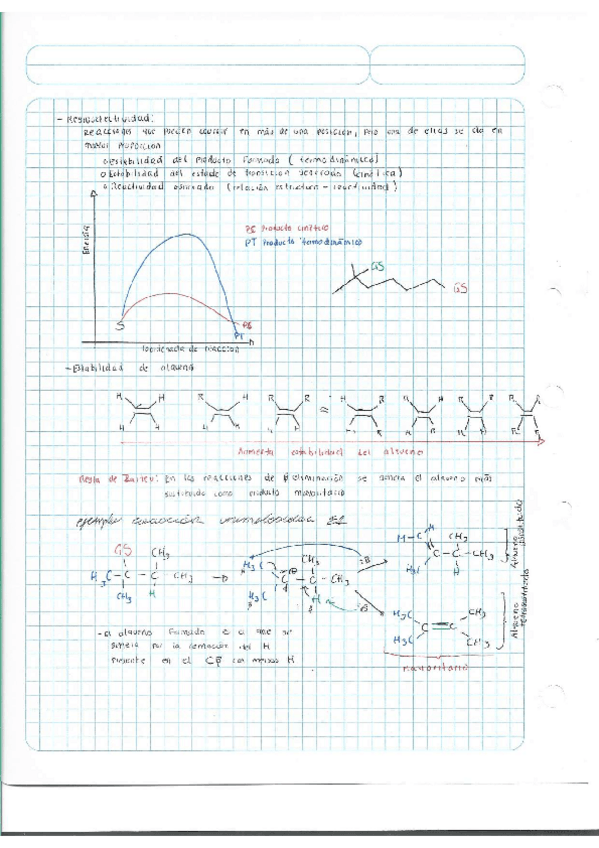 - Regioselectividad:
Reacciones que pueden ocurrir en más de una posición, pero una de ellas se da en
mayor proporción
o Estabilidad del Producto Formado (termodinámica)
o Estabilidad del estado de transición generado (cinética)
o Reactividad observada (relación estructura - reactividad)
Energía
PC Producto cinético
PT Producto termodinámico
GS
GS
S
PC
PT
coordenada de reacción
- Estabilidad de alqueno
H H H H
R H H H
R R H H
≈
H R H R
R R H H
R R R H
R R R R
Aumenta estabilidad del alqueno
Regla de Zaitsev: En las reacciones de β eliminación se genera el alqueno más
sustituido como producto mayoritario
ejemplo E1
GS CH3
H3C-C-C CH3
CH3 H
H3C CH3 :B
C-C-CH3
H3C H :B
H
H-C CH3
C-C-CH3
H3C H
Alqueno disustituido
H3C CH3
C=C
H3C CH3
Alqueno tetrasustituido
mayoritario
- el alqueno formado es el que se
genera por la remoción del H
presente en el Cβ con menos H